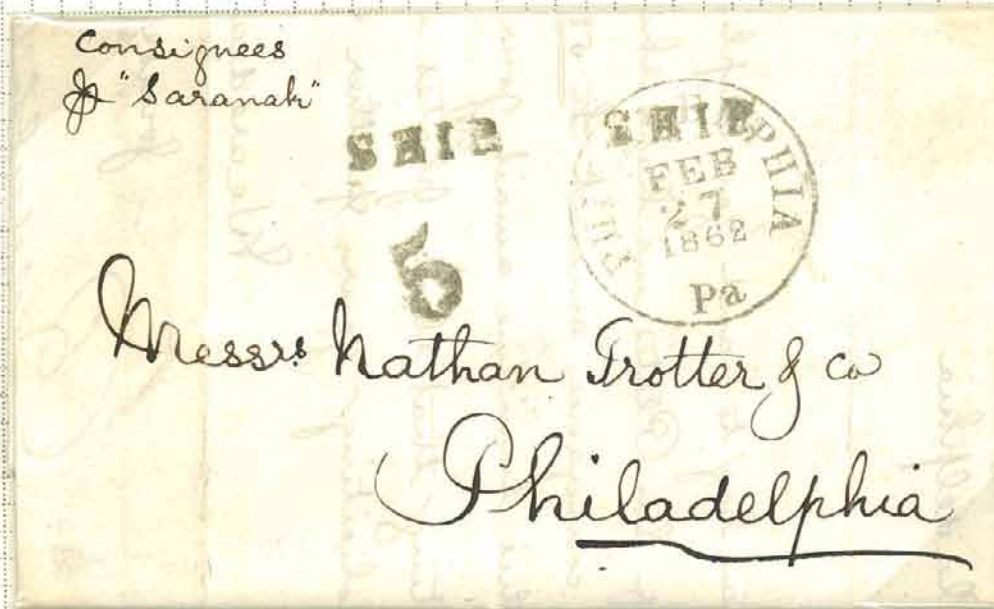 Consignees
pr "Saranak"
SHIP
SHIP
PHILADELPHIA
FEB
27
1862
Pa
6
Messrs. Nathan Trotter & Co
Philadelphia